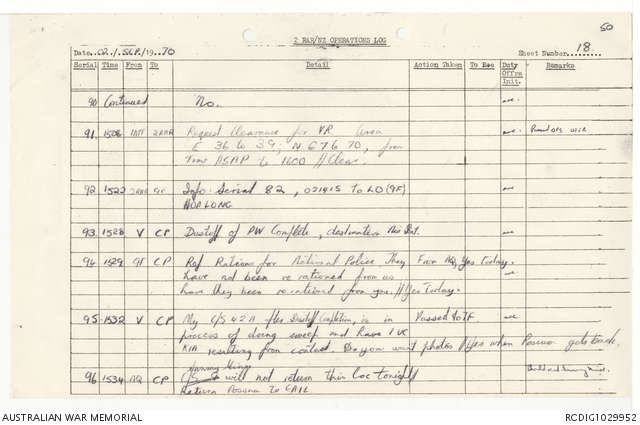 50
2 RAR/NZ OPERATIONS LOG
Date 02 / SEP / 19 70 Sheet Number 18
Serial Time From To Detail Action Taken To Rec Duty Offrs Init. Remarks
90 Continued No.
91 1506 INTF 2RAR Request Clearance for VR Area
E 36 to 39; N 67 to 70, from
Time ASAP to 1600 // Clear.
92 1522 2RAR Info: Serial 82, 021415 to LO (9F)
HOA LONG
93 1528 V CP Dustoff of PW Complete, destination
94 1529 9F CP Ref Rations for National Police They From HQ, Yes Today.
have not been re rationed from us
have they been re rationed from you. // Yes Today.
95 1532 V CP My C/S 42A after Dustoff Completion, is in Passed to TF.
process of doing sweep and have 1 VC
KIA resulting from contact. Do you want photos // Yes when Possum gets back.
96 1534 HQ CP will not return this loc tonight
Return Possum to
AUSTRALIAN WAR MEMORIAL RCDIG1029952